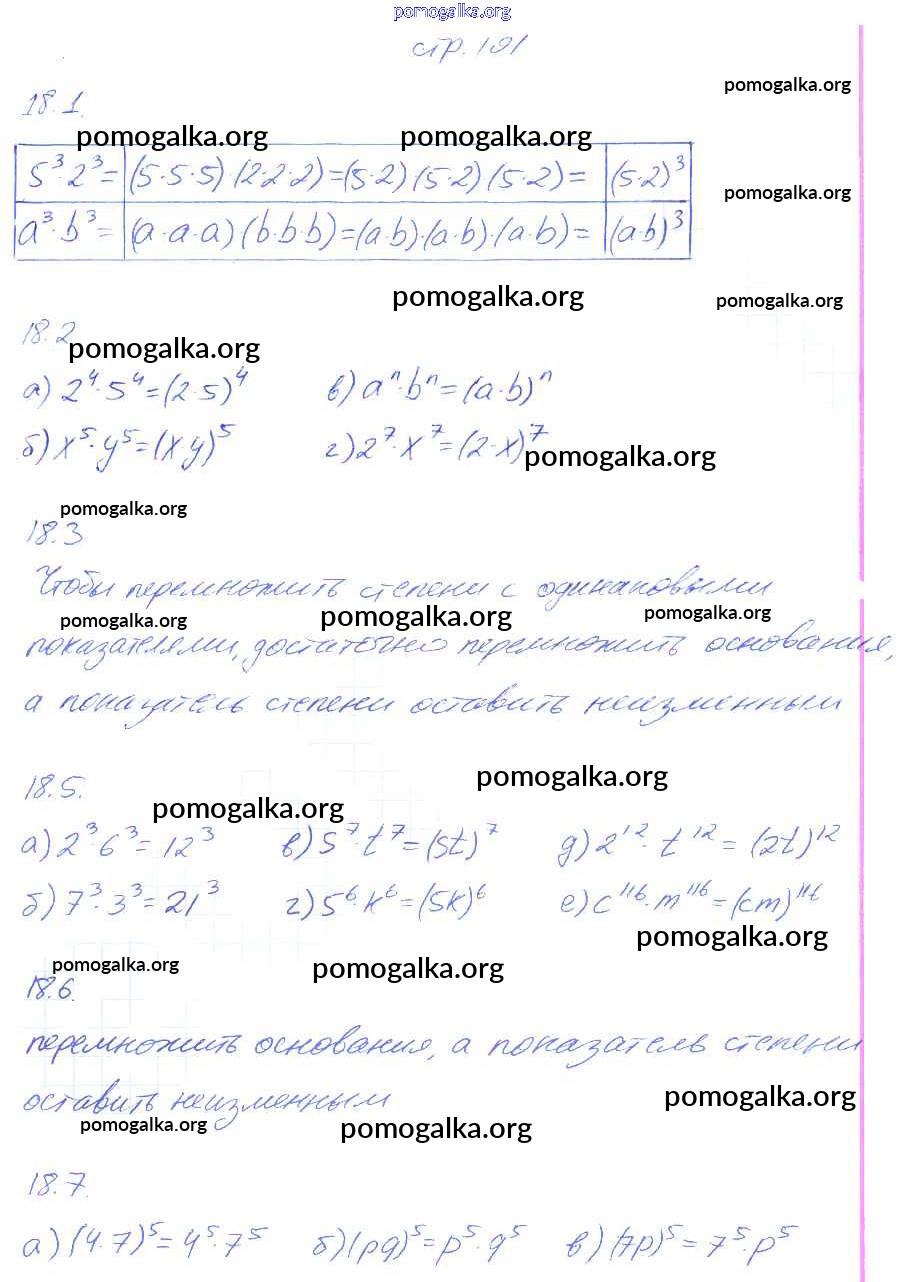 pomogalka.org
стр. 191
pomogalka.org
18.1.
pomogalka.org pomogalka.org
5³·2³= (5·5·5)·(2·2·2)=(5·2)(5·2)(5·2)= (5·2)³
pomogalka.org
a³·b³= (a·a·a)(b·b·b)=(a·b)·(a·b)·(a·b)= (a·b)³
pomogalka.org pomogalka.org
18.2
pomogalka.org
а) 2⁴·5⁴=(2·5)⁴ в) aⁿ·bⁿ=(a·b)ⁿ
б) x⁵·y⁵=(x·y)⁵ г) 2⁷·x⁷=(2·x)⁷
pomogalka.org
pomogalka.org
18.3
Чтобы перемножить степени с одинаковыми
pomogalka.org pomogalka.org pomogalka.org
показателями, достаточно перемножить основания,
а показатель степени оставить неизменным
pomogalka.org
18.5.
pomogalka.org
а) 2³·6³=12³ в) 5⁷·t⁷=(5t)⁷ д) 2¹²·t¹²=(2t)¹²
б) 7³·3³=21³ г) 5⁶·k⁶=(5k)⁶ е) c¹¹⁶·m¹¹⁶=(cm)¹¹⁶
pomogalka.org
pomogalka.org pomogalka.org
18.6.
перемножить основания, а показатель степени
оставить неизменным
pomogalka.org
pomogalka.org pomogalka.org
18.7.
а) (4·7)⁵=4⁵·7⁵ б) (pq)⁵=p⁵·q⁵ в) (7p)⁵=7⁵·p⁵